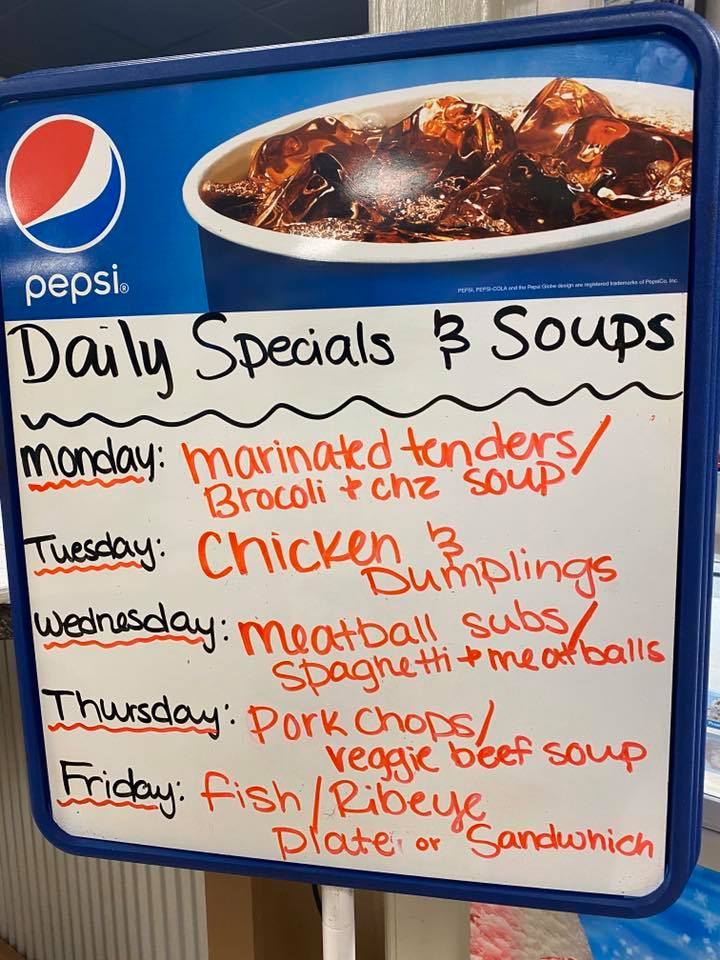 pepsi®
PEPSI, PEPSI-COLA and the Pepsi Globe design are registered trademarks of PepsiCo, Inc.
Daily Specials & Soups
Monday: marinated tenders/
Brocoli + chz soup
Tuesday: Chicken &
Dumplings
Wednesday: meatball subs/
Spaghetti + meatballs
Thursday: Pork Chops/
veggie beef soup
Friday: fish/Ribeye
Plate or Sandwhich